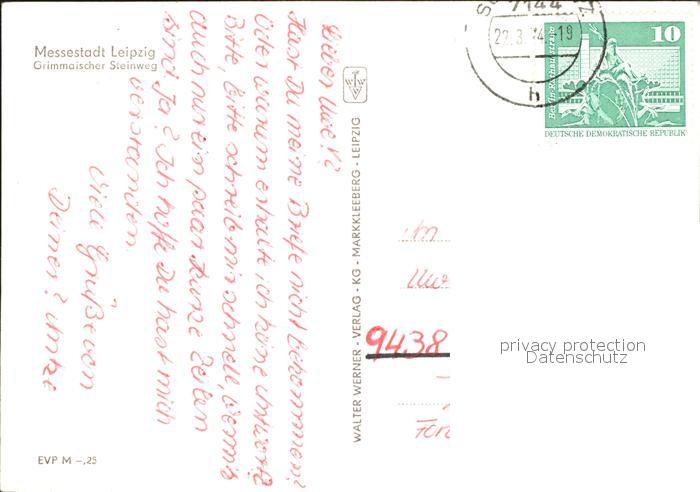 Messestadt Leipzig
Grimmaischer Steinweg
Lieber Uwe!?
Hast Du meine Briefe nicht bekommen?
Oder warum erhalte ich keine Antwort?
Bitte, Bitte schreib mir schnell, wenn's
auch nur ein paar kurze Zeilen
sind ja? Ich hoffe Du hast mich
verstanden.
Viele Grüße von
Deiner?
EVP M -,25
WALTER WERNER · VERLAG · KG · MARKKLEEBERG · LEIPZIG
7144
22.3.74 19
h
10
DEUTSCHE DEMOKRATISCHE REPUBLIK
Uwe
9438
privacy protection
Datenschutz